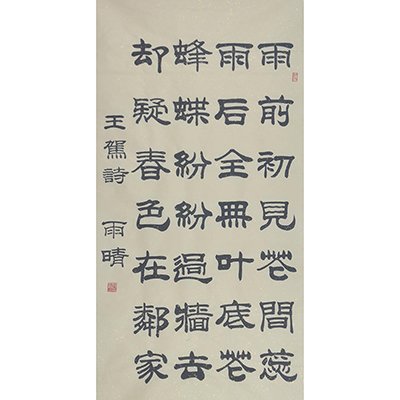 雨前初見花間蕊
雨后全叶底花
蜂蝶紛紛過牆去
却疑春色在鄰家
王駕詩 雨晴